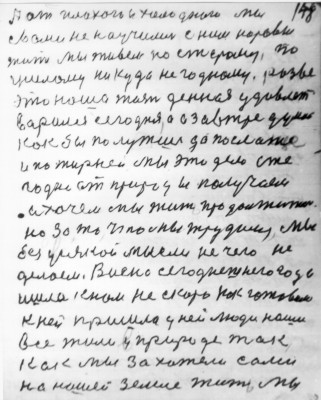 148
Пат плохого и холодного мы
свами не научились с ним наровы
жить мы живем по старому, по
никуда не годному. разве
это наша жизнь денная удовлет
варился сегодня, а завтре думы
как бы получши да послаще
и по жирней мы это дело уже
годы от природы получаем
и хочем мы жить продолжить
но за то что мы трудимся, мы
без всякой мысли не чего не
делаем. Весна сегоднешнего года
шила к нам не скоро как готовая
к ней пришла у ней люди наши
все жили в природе так
как мы захотели сами
на нашей земле жить, мы